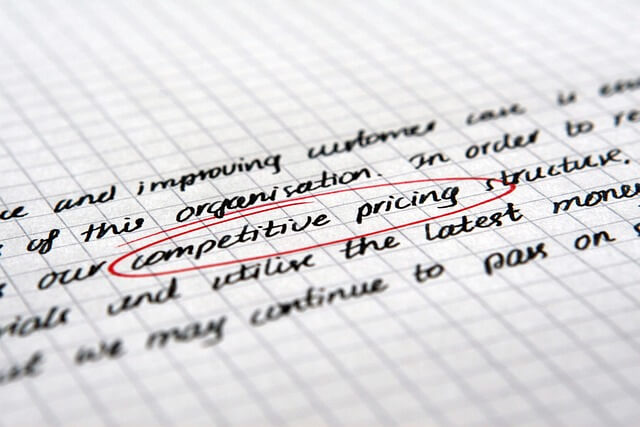 ce and improving customer care is
of this organisation. In order to re
our competitive pricing structure.
rials and utilise the latest mone
we may continue to pass on s